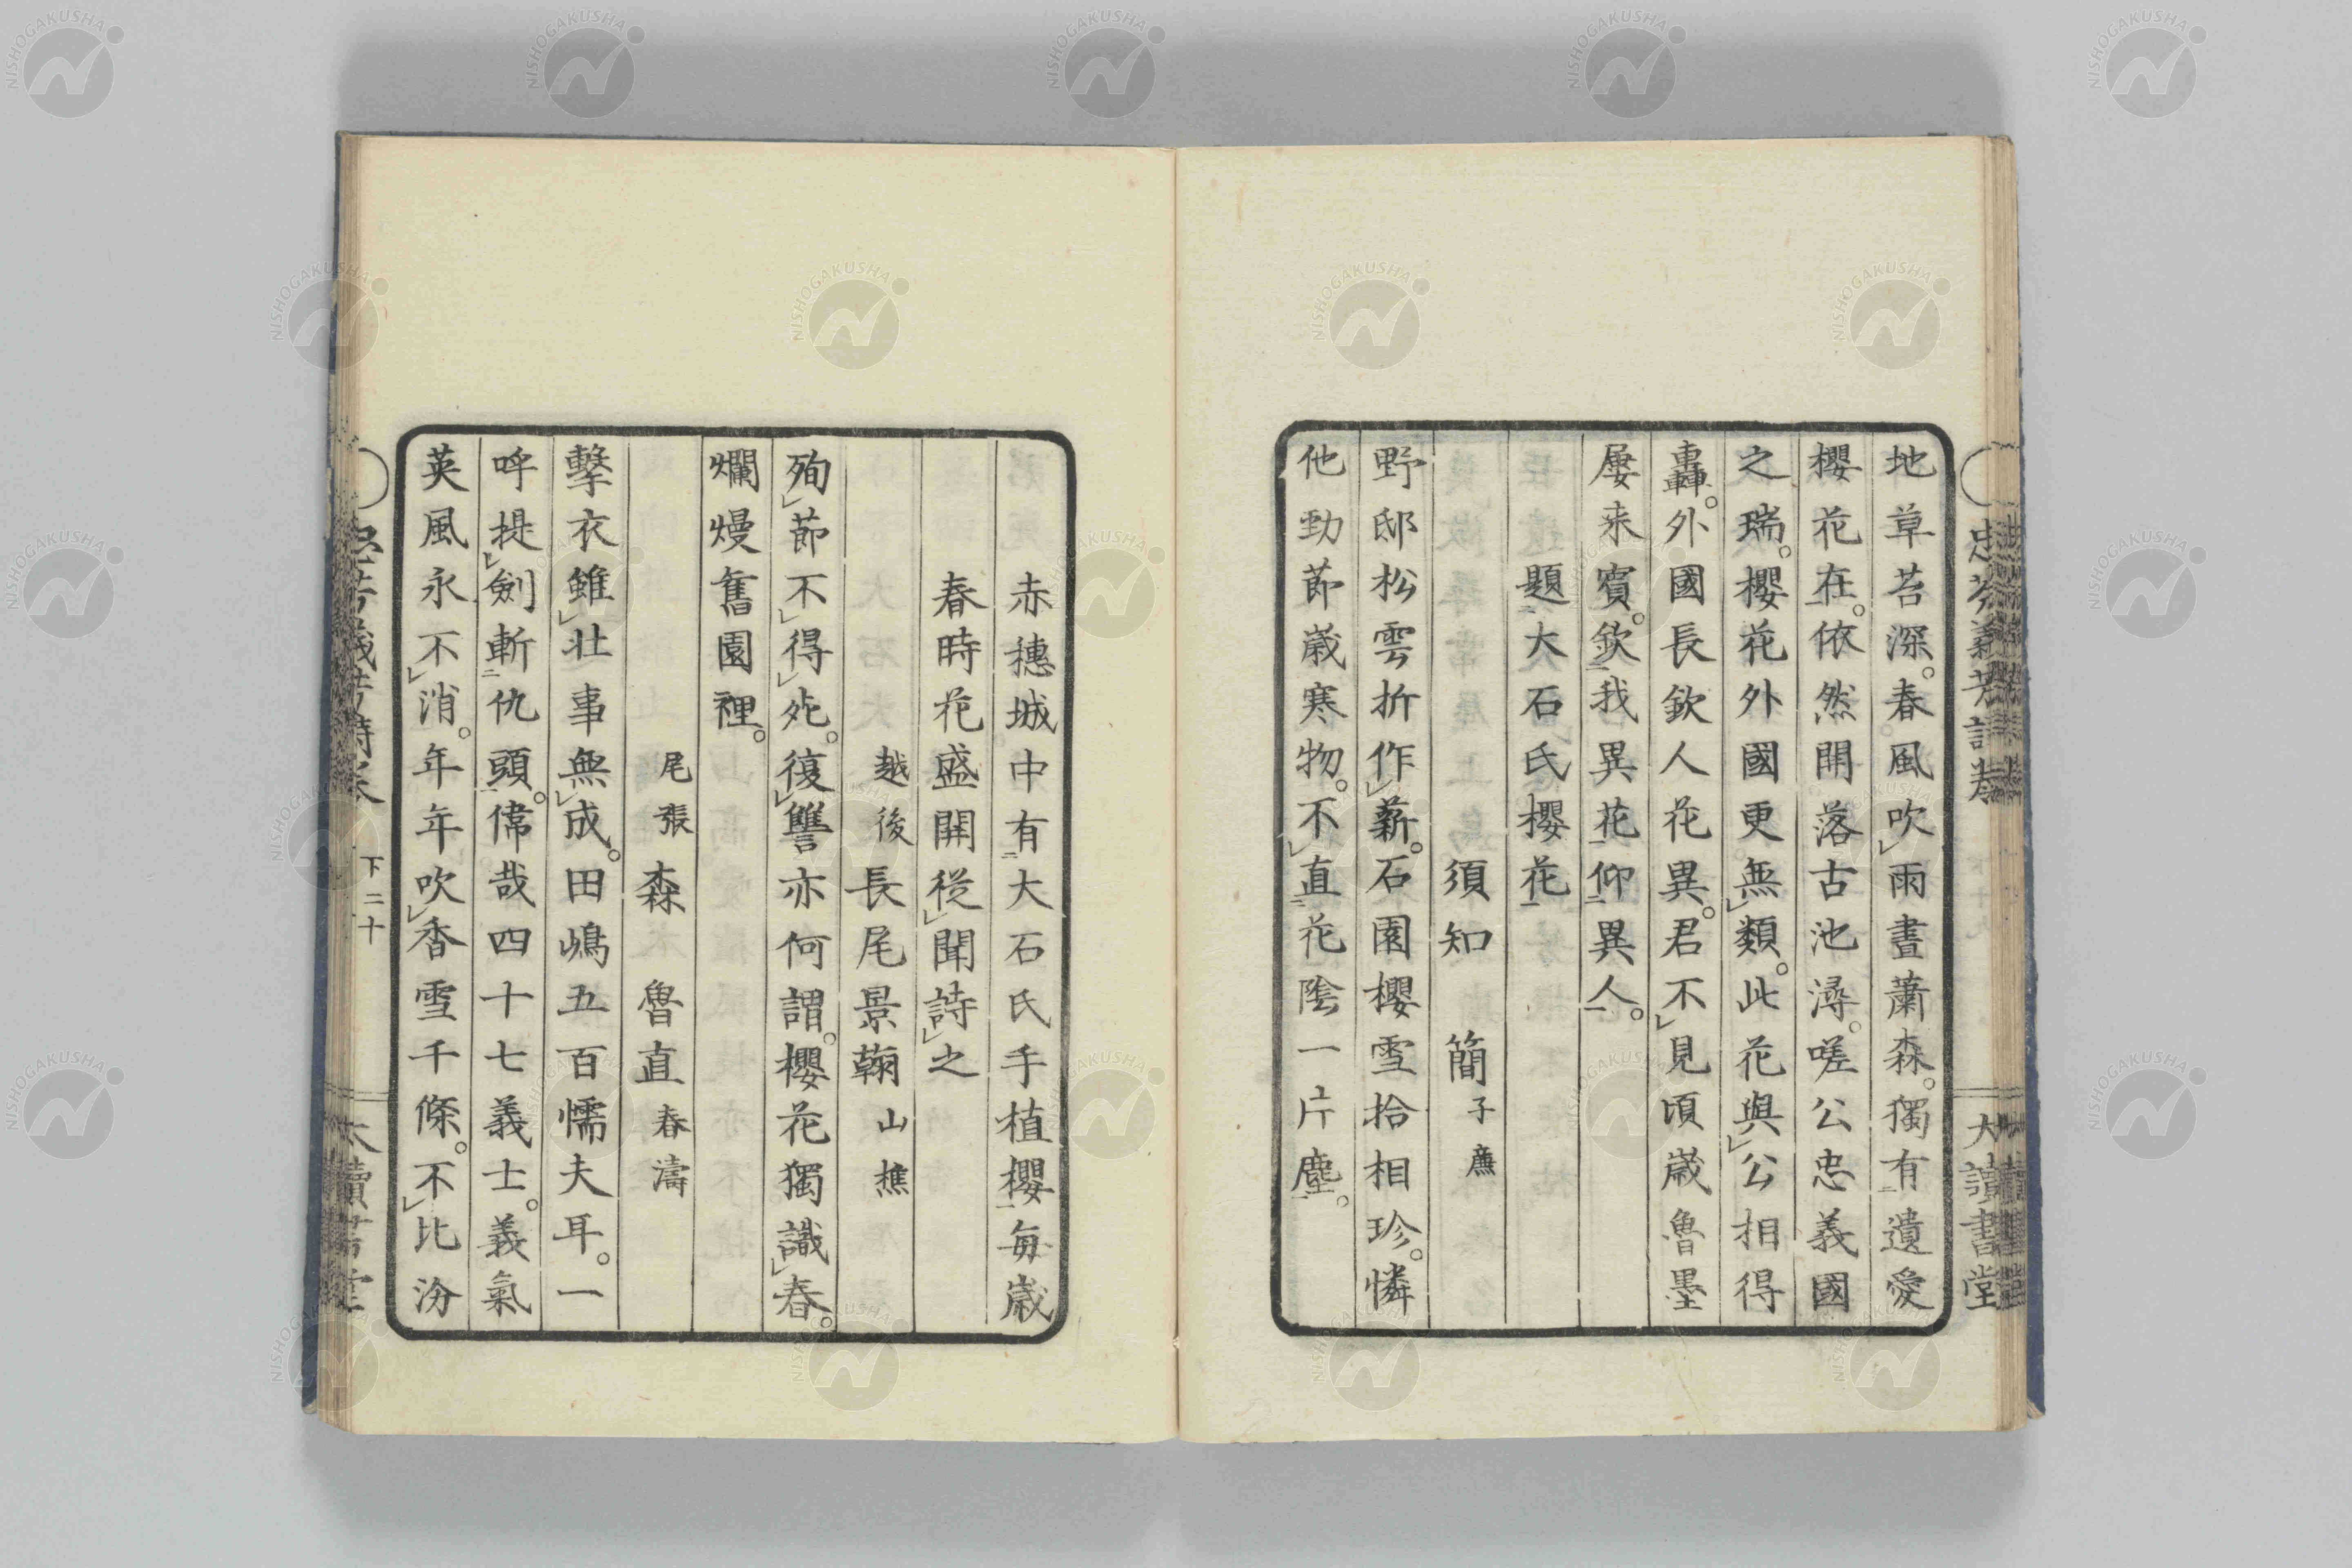 地草苔深。春風吹雨晝蕭森。獨有遺愛
櫻花在。依然開落古池潯。嗟公忠義國
之瑞。櫻花外國更無類。此花與公相得
轟。外國長欽人花異。君不見頃歳魯墨
屢来賓。欽我異花仰異人。
題大石氏櫻花
須知 簡 子廉
野邸松雲折作薪。石園櫻雪拾相珍。憐
他勁節歳寒物。不直花陰一片塵。
赤穗城中有大石氏手植櫻每歳
春時花盛開從聞詩之
越後 長尾景翰 山樵
殉節不得死。復讐亦何謂。櫻花獨識春。
爛熳舊園裡。
尾張 森 魯直 春濤
擊衣雖壯事無成。田嶋五百懦夫耳。一
呼提劍斬仇頭。偉哉四十七義士。義氣
英風永不消。年年吹香雪千條。不比汾
忠芬義芳詩巻
大讀書堂
下二十
NISHOGAKUSHA